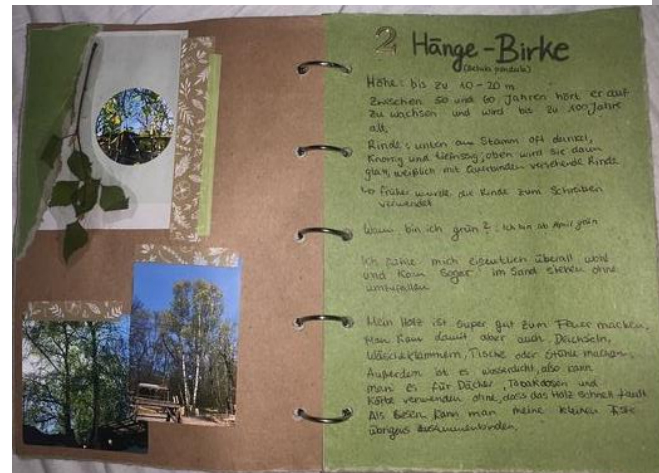 2 Hänge-Birke
(Betula pendula)
Höhe: bis zu 10-20 m
Zwischen 50 und 60 Jahren hört er auf
zu wachsen und wird bis zu 100 Jahre
alt.
Rinde: unten am Stamm oft dunkel,
knorrig und tiefrissig, oben wird sie dann
glatt, weißlich mit Querbinden versehende Rinde
↳ früher wurde die Rinde zum Schreiben
verwendet
Wann bin ich grün?: Ich bin ab April grün
Ich fühle mich eigentlich überall wohl
und kann sogar im Sand stehen ohne
umzufallen
Mein Holz ist super gut zum Feuer machen,
Man kann damit aber auch Deichseln,
Wäscheklammern, Tische oder Stühle machen.
Außerdem ist es wasserdicht, also kann
man es für Dächer, Tabakdosen und
Körbe verwenden ohne, dass das Holz schnell fault
Als Besen kann man meine kleinen Äste
übrigens zusammenbinden.